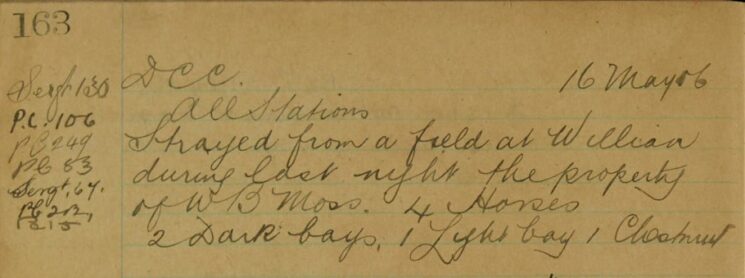 163
D C C.
16 May 06
All Stations
Strayed from a field at Willian
during last night the property
of W B Moss. 4 Horses
2 Dark bays, 1 Light bay 1 Chestnut
Sergt 130
P.C. 106
PC 249
PC 83
Sergt. 67.